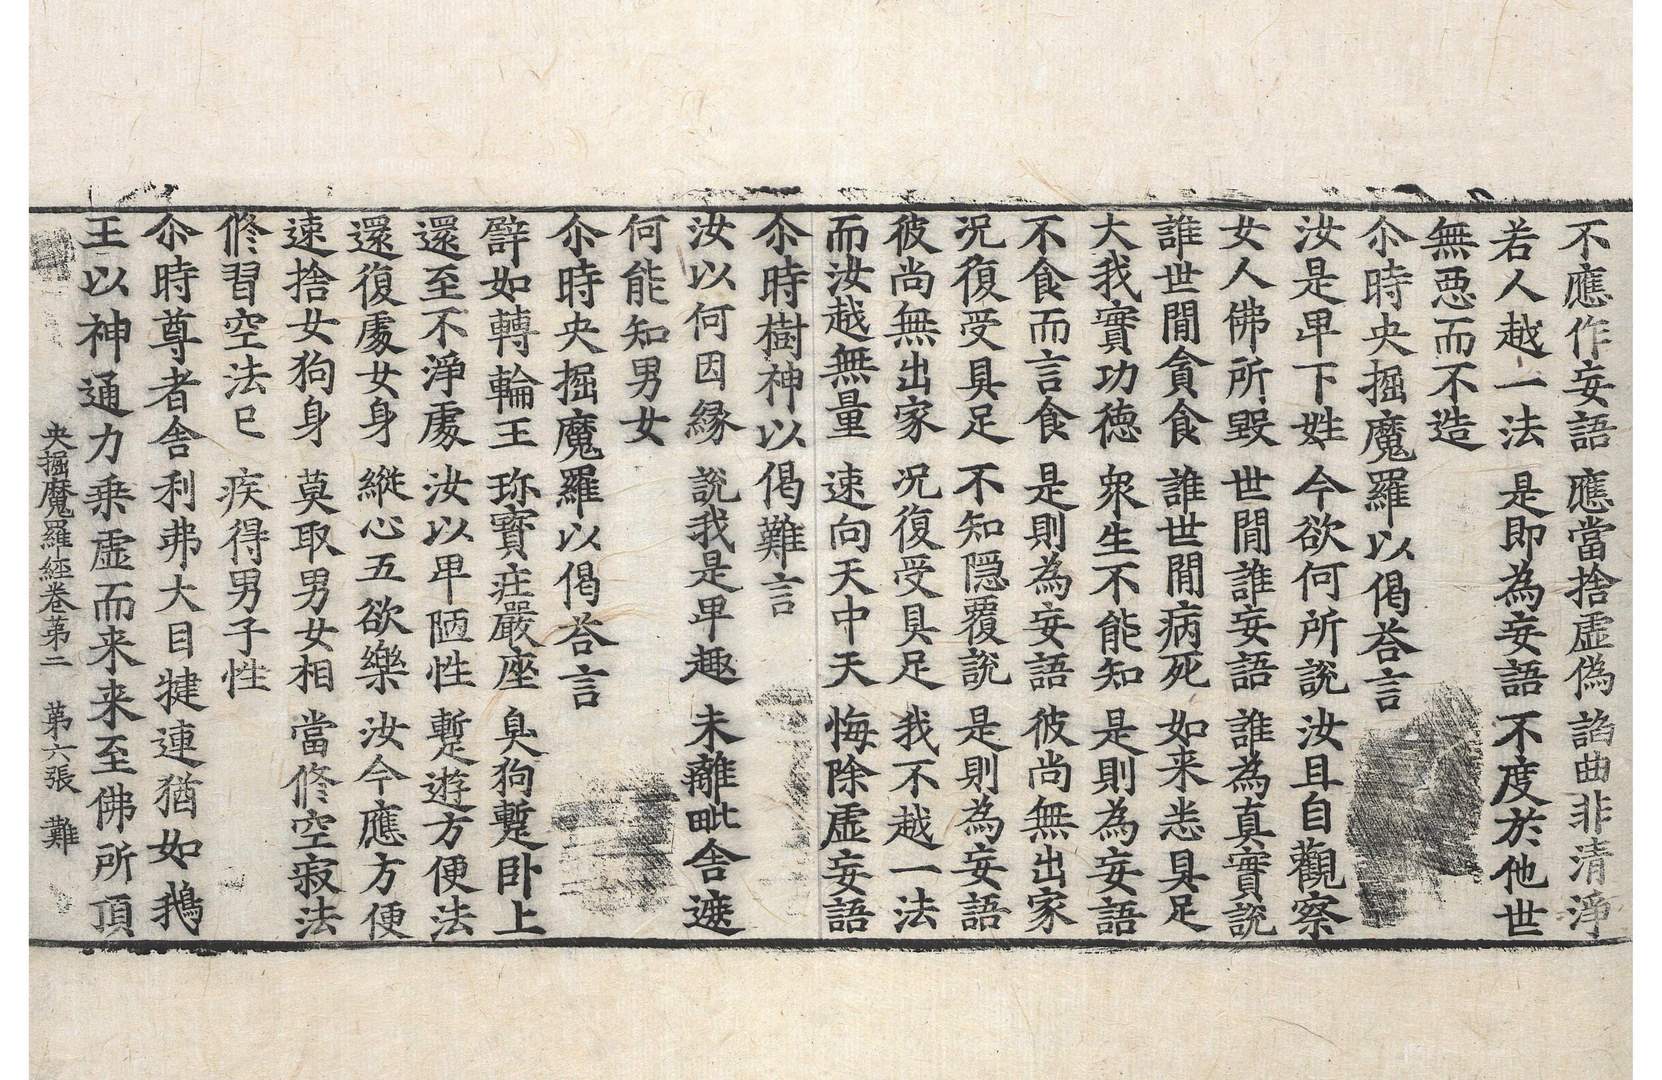 不應作妄語 應當捨虛偽 諂曲非清淨
若人越一法 是即為妄語 不度於他世
無惡而不造
尒時央掘魔羅以偈荅言
汝是卑下姓 今欲何所說 汝且自觀察
女人佛所毀 世閒誰妄語 誰為真實說
誰世閒貪食 誰世閒病死 如来悉具足
大我實功德 衆生不能知 是則為妄語
不食而言食 是則為妄語 彼尚無出家
況復受具足 不知隱覆說 是則為妄語
彼尚無出家 况復受具足 我不越一法
而汝越無量 速向天中天 悔除虛妄語
尒時樹神以偈難言
汝以何因緣 說我是卑趣 未離毗舍遮
何能知男女
尒時央掘魔羅以偈荅言
譬如轉輪王 珎寶莊嚴座 臭狗蹔卧上
還至不淨處 汝以卑陋性 蹔遊方便法
還復處女身 縱心五欲樂 汝今應方便
速捨女狗身 莫取男女相 當修空寂法
修習空法已 疾得男子性
尒時尊者舍利弗大目犍連猶如鵝
王以神通力乗虛而来来至佛所頂
央掘魔羅經卷第二 第六張 難